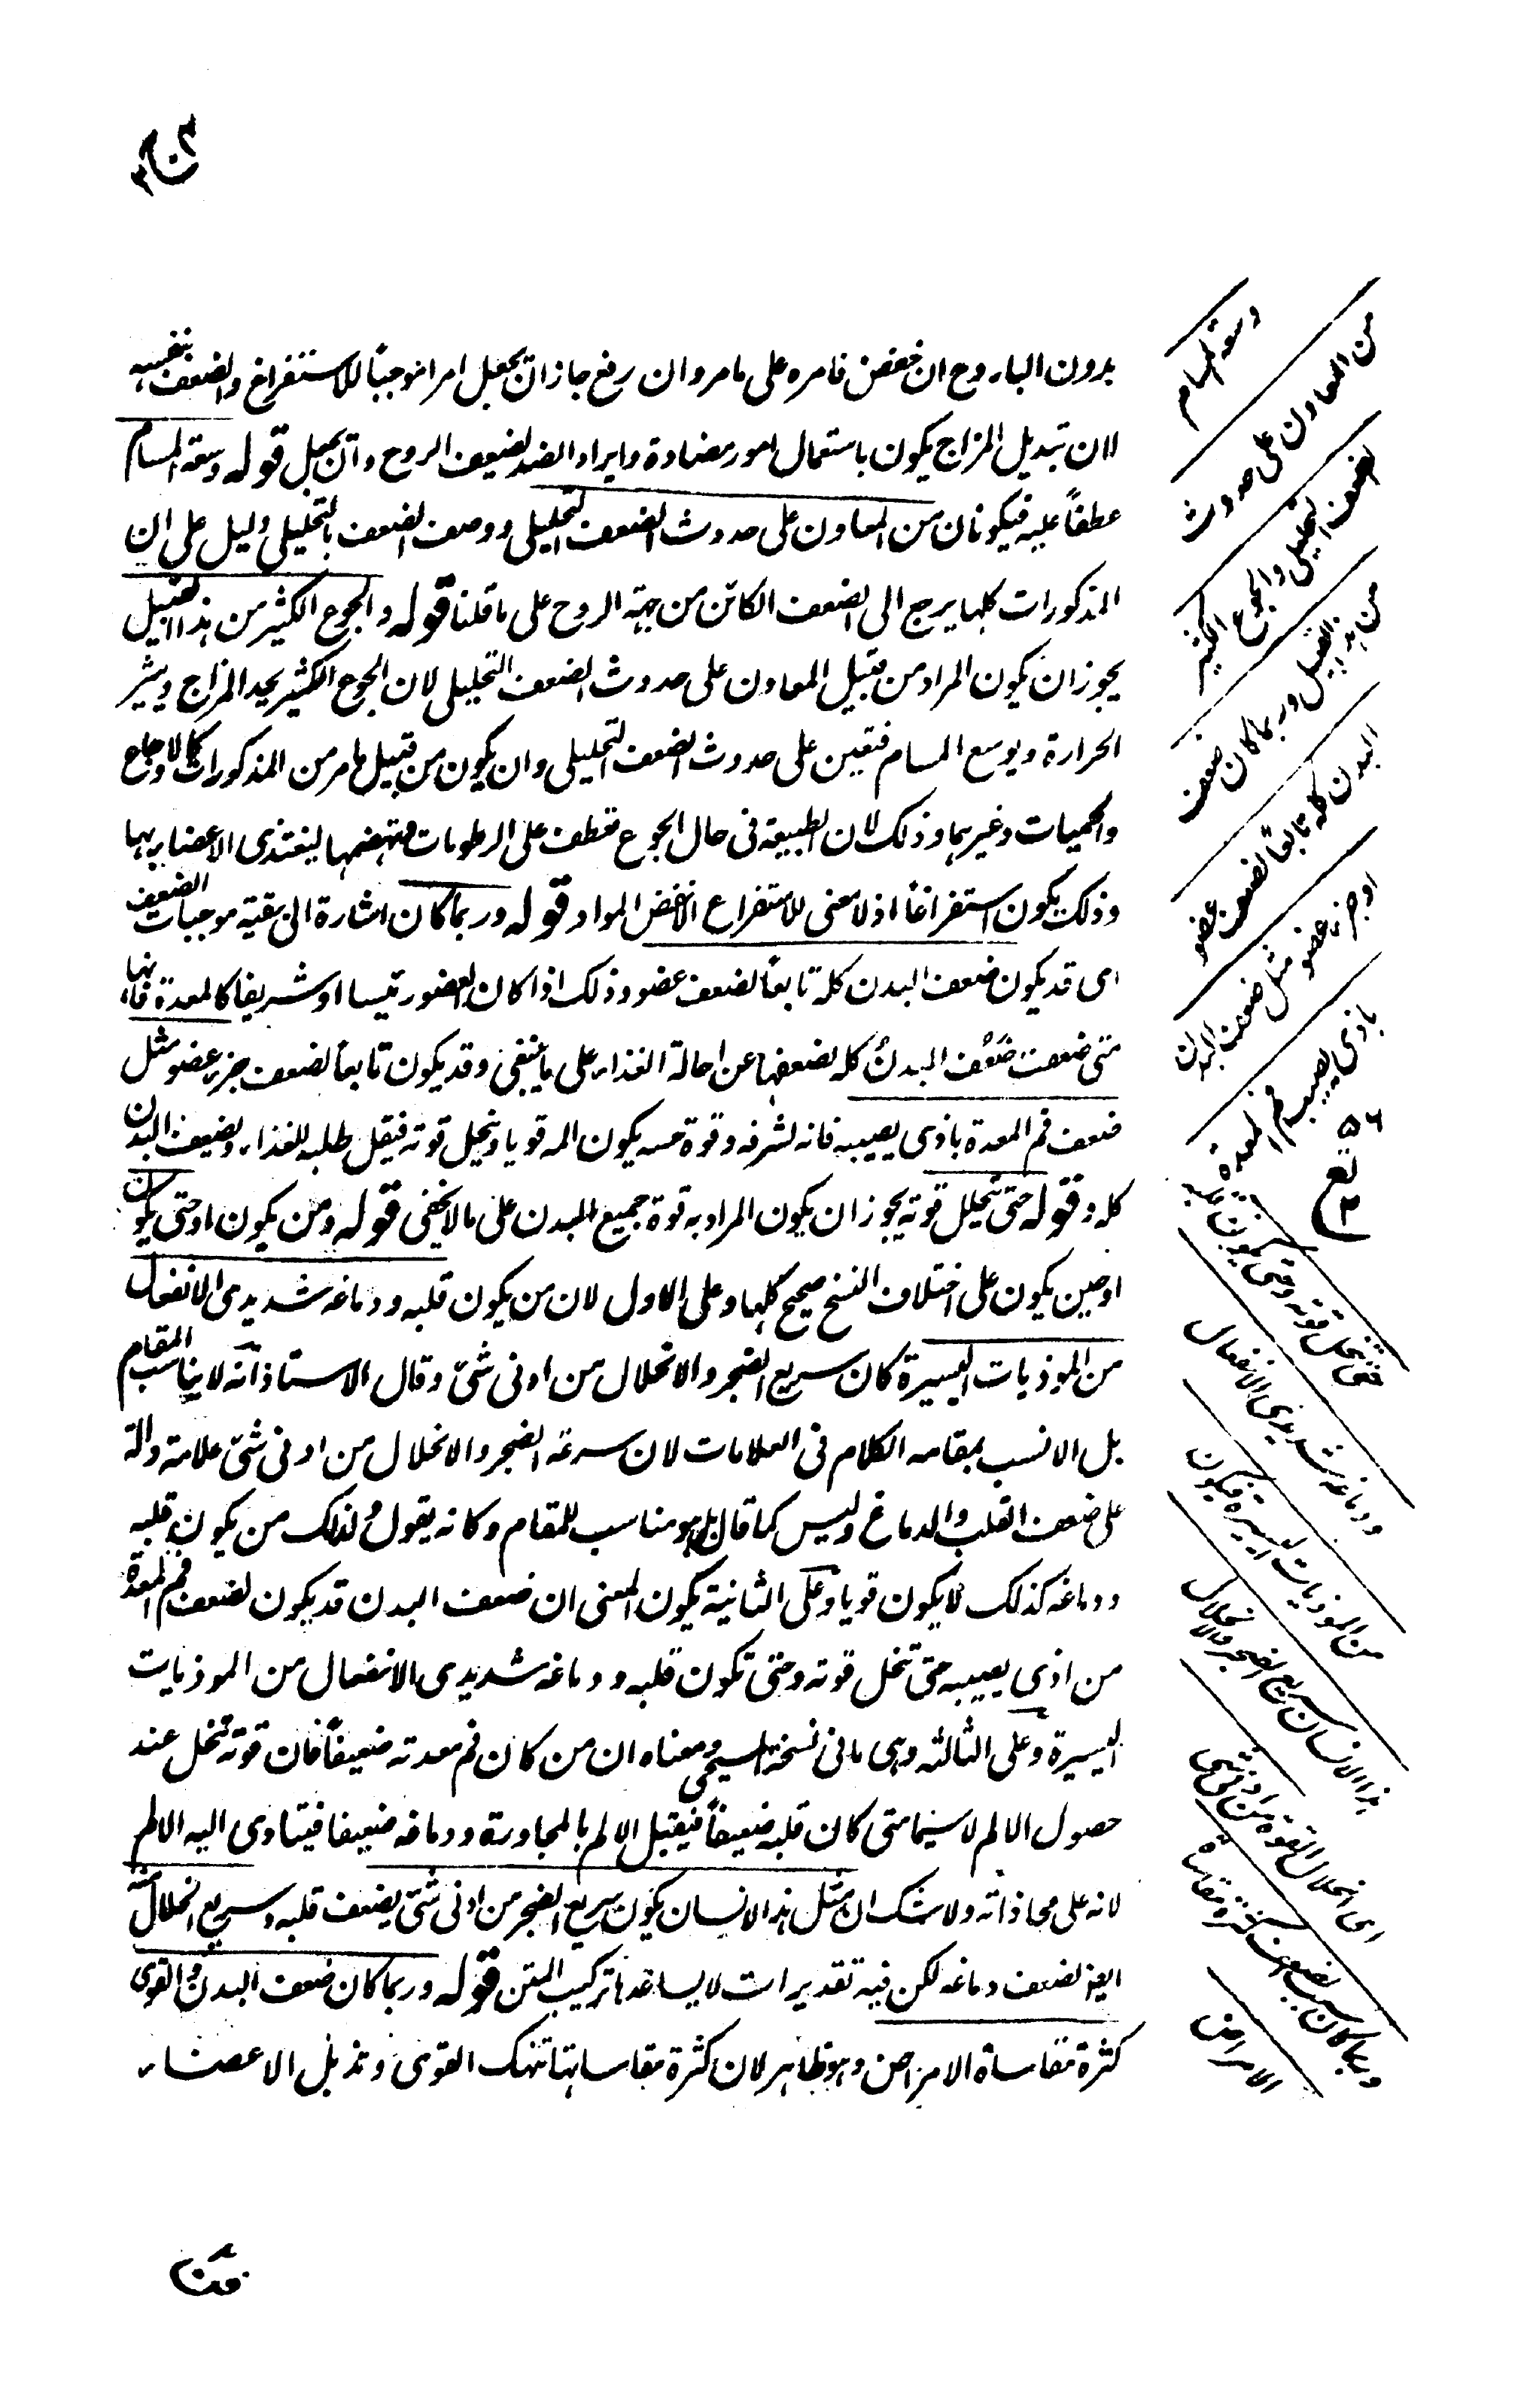 بدون الباء وح ان خفض فامره على ما مر وان رفع جاز ان يجعل امرا موجبًا للاستفراغ والضعف بنفسه
لان تبديل المزاج يكون باستعمال امور مضادة وايراد الضد لضعيف الروح وان يجعل قوله وسعة المسام
عطفًا عليه فيكونان من المعاون على حدوث الضعف التحليلى ووصف الضعف بالتحليلى دليل على ان
المذكورات كلها يرجع الى الضعف الكائن من جهة الروح على ما قلنا قوله والجوع الكثير من هذا القبيل
يجوز ان يكون المراد من قبيل المعاون على حدوث الضعف التحليلى لان الجوع الكثير يحد المزاج ويثير
الحرارة ويوسع المسام فتعين على حدوث الضعف التحليلى وان يكون من قبيل ما مر من المذكورات كالاوجاع
والحميات وغيرهما وذلك لان الطبيعة فى حال الجوع تعطف على الرطوبات فتهضمها ليغتذى الاعضاء بها
وذلك يكون استفراغًا اذ لا معنى للاستفراغ الا نقض المواد قوله وربما كان اشارة الى بقية موجبات الضعف
اى قد يكون ضعف البدن كله تابعًا لضعف عضو وذلك اذا كان العضو رئيسا او شريفا كالمعدة فانها
متى ضعفت ضَعُف البدنُ كله لضعفها عن احالة الغذاء على ما ينبغى وقد يكون تابعا لضعف جزء عضو مثل
ضعف فم المعدة باذى يصيبه فانه لشرفه وقوة حسه يكون المه قويا ويحيل قوته فيقل طلبه للغذاء ويضعف البدن
كله وقوله حتى تتحلل قوته يجوز ان يكون المراد به قوة جميع البدن على ما لا يخفى قوله ومن يكون او حتى يكون
او حين يكون على اختلاف النسخ صحيح كلها وعلى الاول لان من يكون قلبه ودماغه شديدى الانفعال
من الموذيات اليسيرة كان سريع الضجر والانحلال من ادنى شئ وقال الاستاذ انه لا يناسب المقام
بل الانسب بمقامه الكلام فى العلامات لان سرعة الضجر والانحلال من ادنى شئ علامة دالة
على ضعف القلب والدماغ وليس كما قال بل هو مناسب للمقام وكانه يقول ولذلك من يكون قلبه
ودماغه كذلك لا يكون قويا وعلى الثانية يكون المعنى ان ضعف البدن قد يكون لضعف فم المعدة
من اذى يصيبه حتى تنحل قوته وحتى تكون قلبه ودماغه شديدى الانفعال من الموذيات
اليسيرة وعلى الثالثة وهى ما فى نسخة المسيحى ومعناه ان من كان فم معدته ضعيفًا فان قوته تنحل عند
حصول الالم لا سيما متى كان قلبه ضعيفًا فيقبل الالم بالمجاورة ودماغه ضعيفا فيتادى اليه الالم
لانه على محاذاته ولا شك ان مثل هذا الانسان يكون سريع الضجر من ادنى شئ يضعف قلبه وسريع انحلال
ايضا لضعف دماغه لكن فيه تقديرات لا يساعدها تركيب المتن قوله وربما كان ضعف البدن والقوى
كثرة مقاساة الامراض وهو ظاهر لان كثرة مقاساتها تنهك القوى وتذبل الاعضاء
وسعة المسام
من المعاون على حدوث
الضعف التحليلى والجوع الكثير
من هذا القبيل وربما كان ضعف
البدن كله تابعًا لضعف عضو
او جزء عضو مثل ضعف البدن
باذى يصيب فم المعدة
٥٦
حتى تتحلل قوته وحتى يكون قلبه
ودماغه شديدى الانفعال
من الموذيات اليسيرة فيكون
هذا الانسان سريع الضجر والانحلال
اى انحلال القوة من ادنى شئ
وربما كان سبب الضعف كثرة مقاساة
الامراض